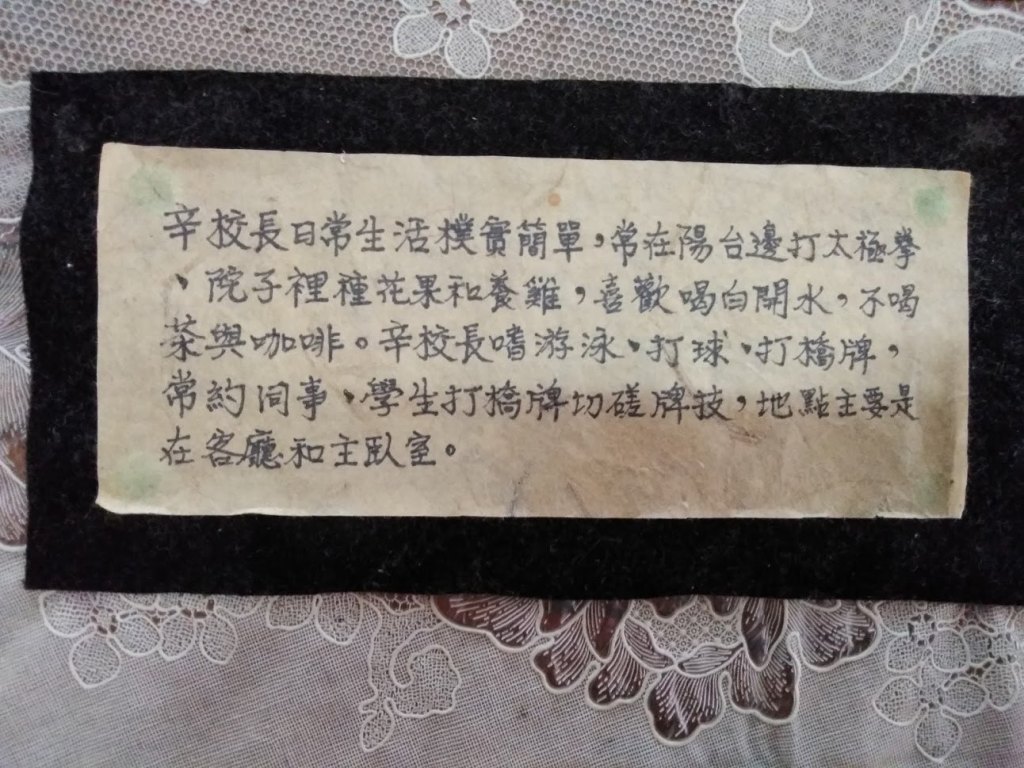 辛校長日常生活樸實簡單，常在陽台邊打太極拳
、院子裡種花果和養雞，喜歡喝白開水，不喝
茶與咖啡。辛校長嗜游泳、打球、打橋牌，
常約同事、學生打橋牌切磋牌技，地點主要是
在客廳和主臥室。